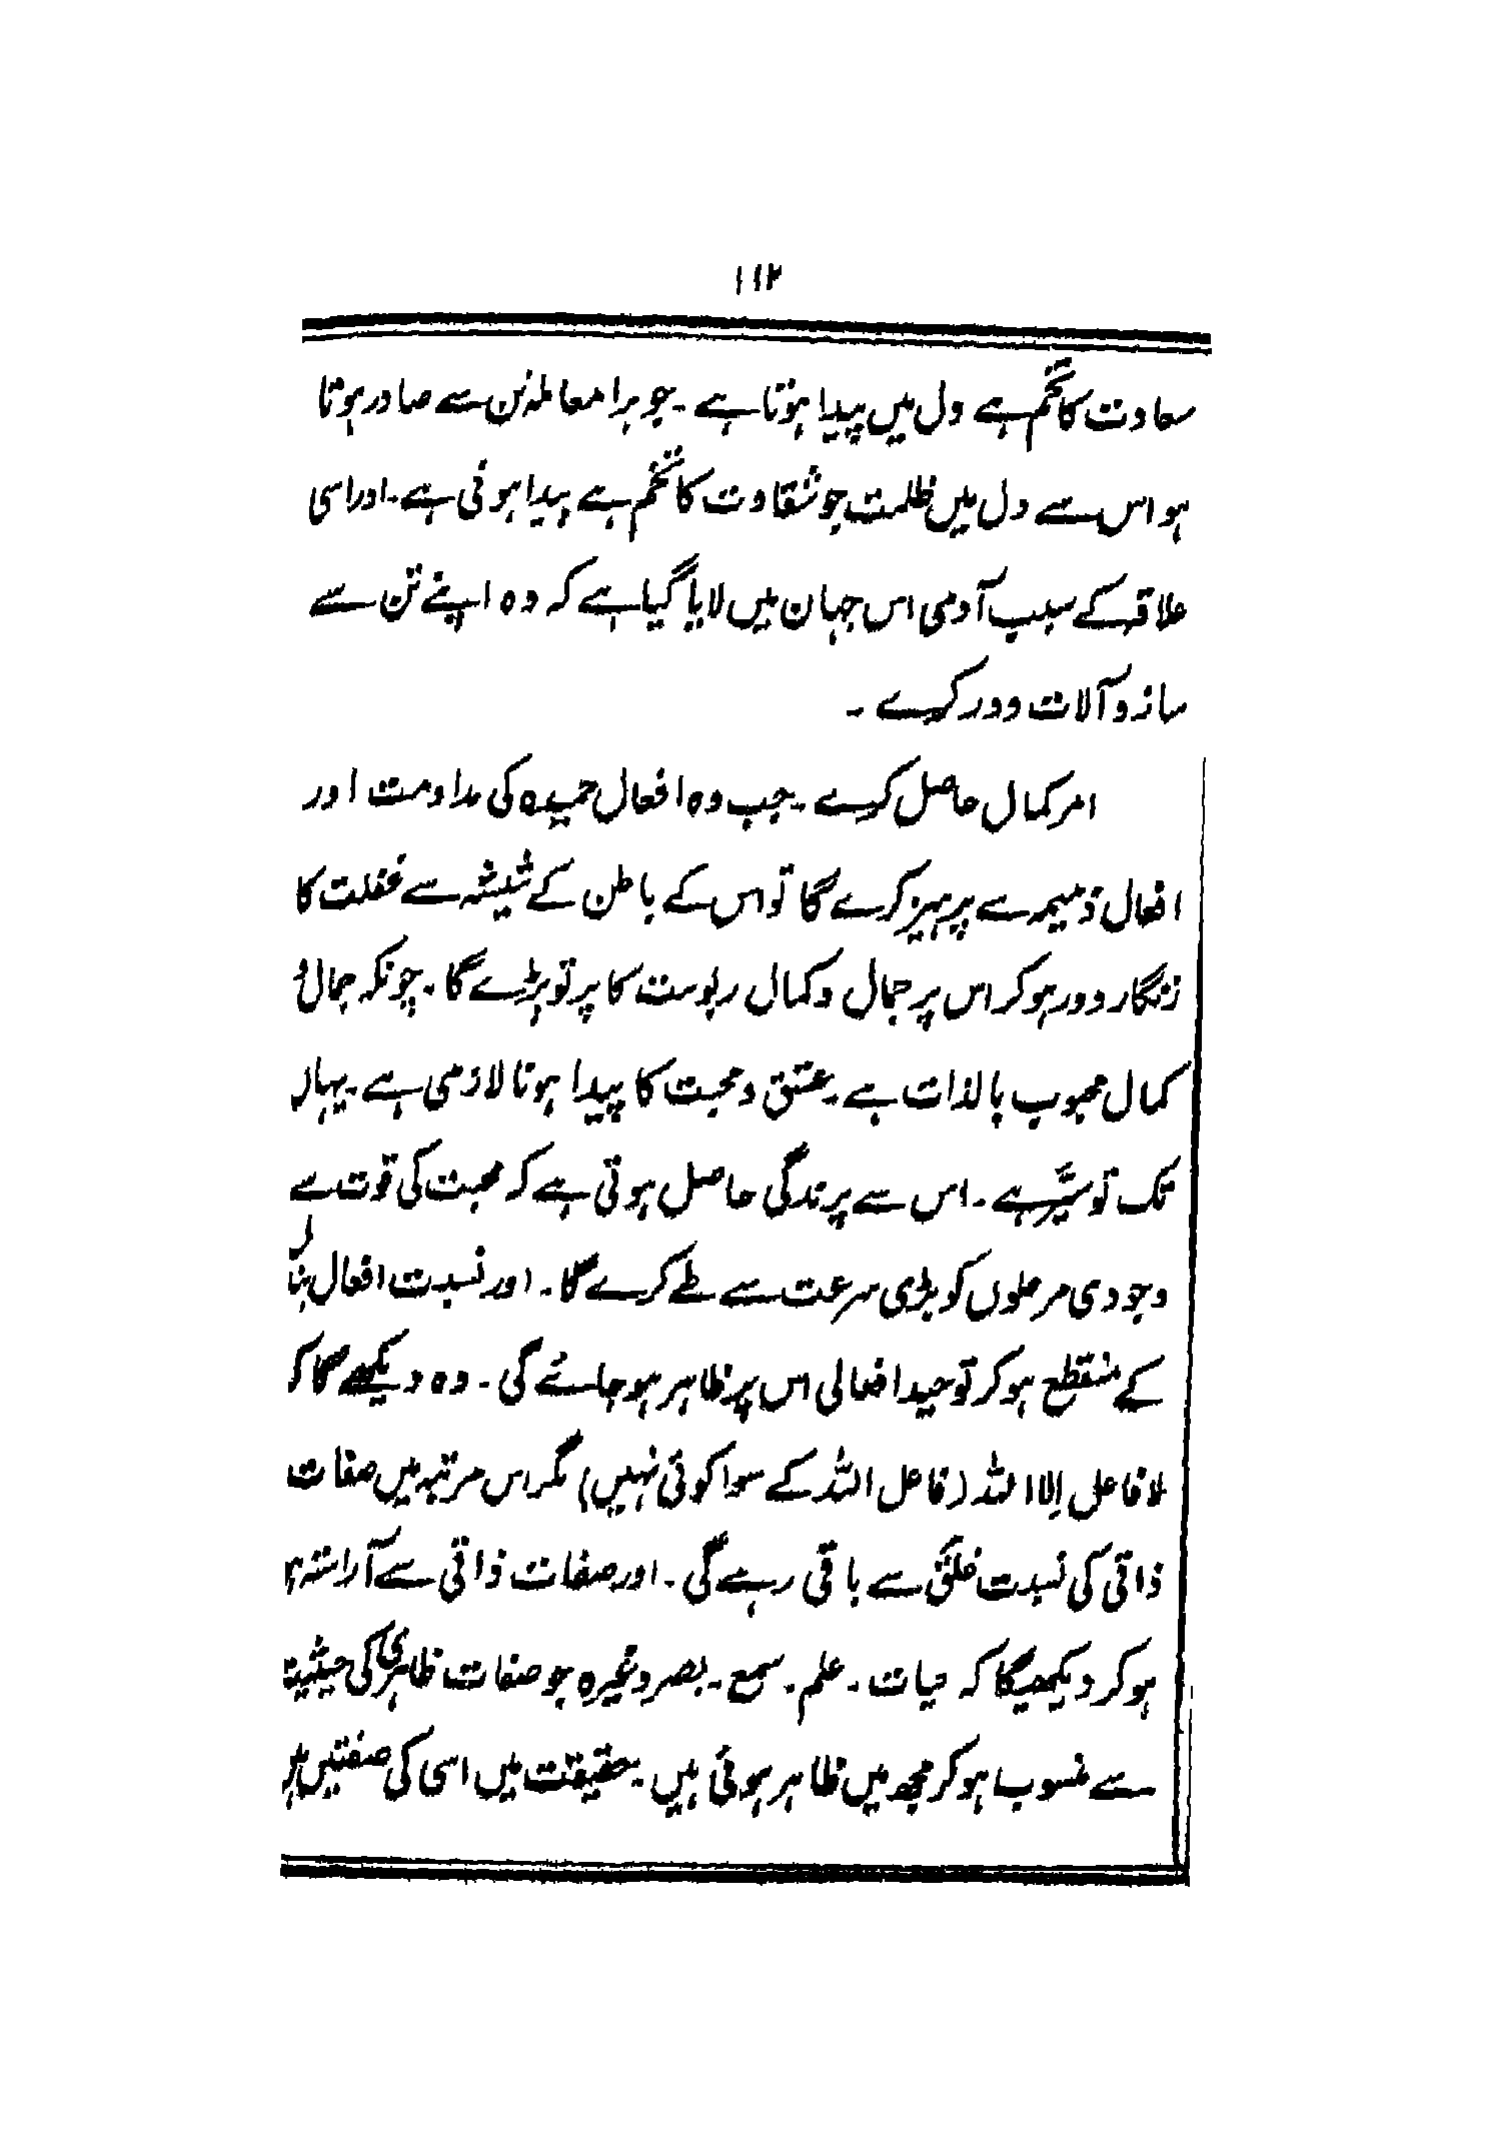 ۱۱۲
سعادت کا تخم ہے دل میں پیدا ہوتا ہے ۔ جو برا معاملہ تن سے صادر ہوتا
ہو اس سے دل میں ظلمت جو شقاوت کا تخم ہے پیدا ہوتی ہے ۔ اور اسی
علاقہ کے سبب آدمی اس جہان میں لایا گیا ہے کہ وہ اپنے تن سے
ساز و آلات دور کرے ۔
امر کمال حاصل کرے ۔ جب وہ افعال حمیدہ کی مداومت اور
افعال ذمیمہ سے پرہیز کرے گا تو اس کے باطن کے شیشہ سے غفلت کا
زنگار دور ہو کر اس پر جمال و کمال ربوبیت کا پرتو پڑے گا ۔ چونکہ جمال و
کمال محبوب بالذات ہے ۔ عشق و محبت کا پیدا ہونا لازمی ہے ۔ یہاں
تک تو سیر ہے ۔ اس سے پرندگی حاصل ہوتی ہے کہ محبت کی قوت سے
وجودی مرحلوں کو بڑی سرعت سے طے کرے گا ۔ اور نسبت افعال
کے منقطع ہو کر توحید افعالی اس پر ظاہر ہو جائے گی ۔ وہ دیکھے گا کہ
لا فاعل اِلا اللہ (فاعل اللہ کے سوا کوئی نہیں) مگر اس مرتبہ میں صفات
ذاتی کی نسبت خلق سے باقی رہے گی ۔ اور صفات ذاتی سے آراستہ
ہو کر دیکھیگا کہ حیات ۔ علم ۔ سمع ۔ بصر وغیرہ جو صفات ظاہری کی حیثیت
سے منسوب ہو کر مجھ میں ظاہر ہوئی ہیں ۔ حقیقت میں اسی کی صفتیں ہیں